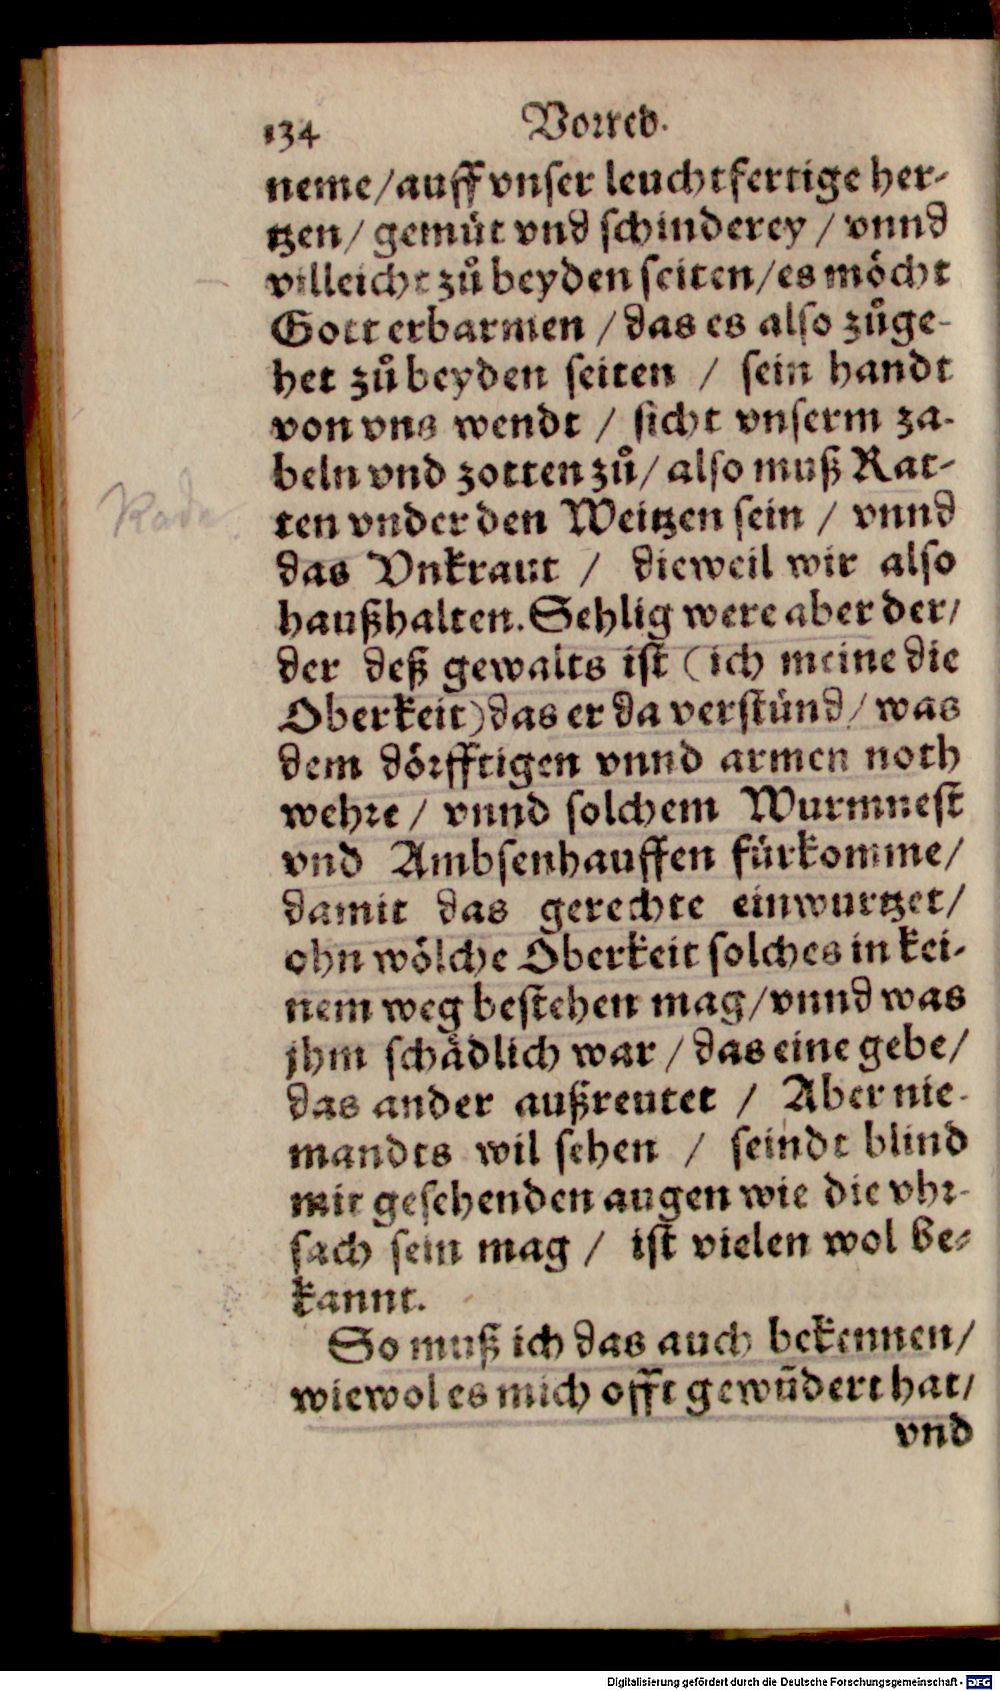 134 Vorred.
neme/auff vnser leuchtfertige her-
tzen/ gemüt vnd schinderey / vnnd
villeicht zů beyden seiten/es möcht
Gott erbarmen /das es also zůge-
het zů beyden seiten / sein handt
von vns wendt / sicht vnserm za-
beln vnd zotten zů/ also muß Rat-
ten vnder den Weitzen sein / vnnd
das Vnkraut / dieweil wir also
haußhalten. Sehlig were aber der/
der deß gewalts ist (ich meine die
Oberkeit) das er da verstünd/ was
dem dörfftigen vnnd armen noth
wehre / vnnd solchem Wurmnest
vnd Ambsenhauffen fürkomme/
damit das gerechte einwurtzet/
ohn wölche Oberkeit solches in kei-
nem weg bestehen mag/vnnd was
jhm schädlich war / das eine gebe/
das ander außreutet / Aber nie-
mandts wil sehen / seindt blind
mit gesehenden augen wie die vhr-
sach sein mag / ist vielen wol be-
kannt.
So muß ich das auch bekennen/
wiewol es mich offt gewũdert hat/
vnd
Rade
Digitalisierung gefördert durch die Deutsche Forschungsgemeinschaft - DFG